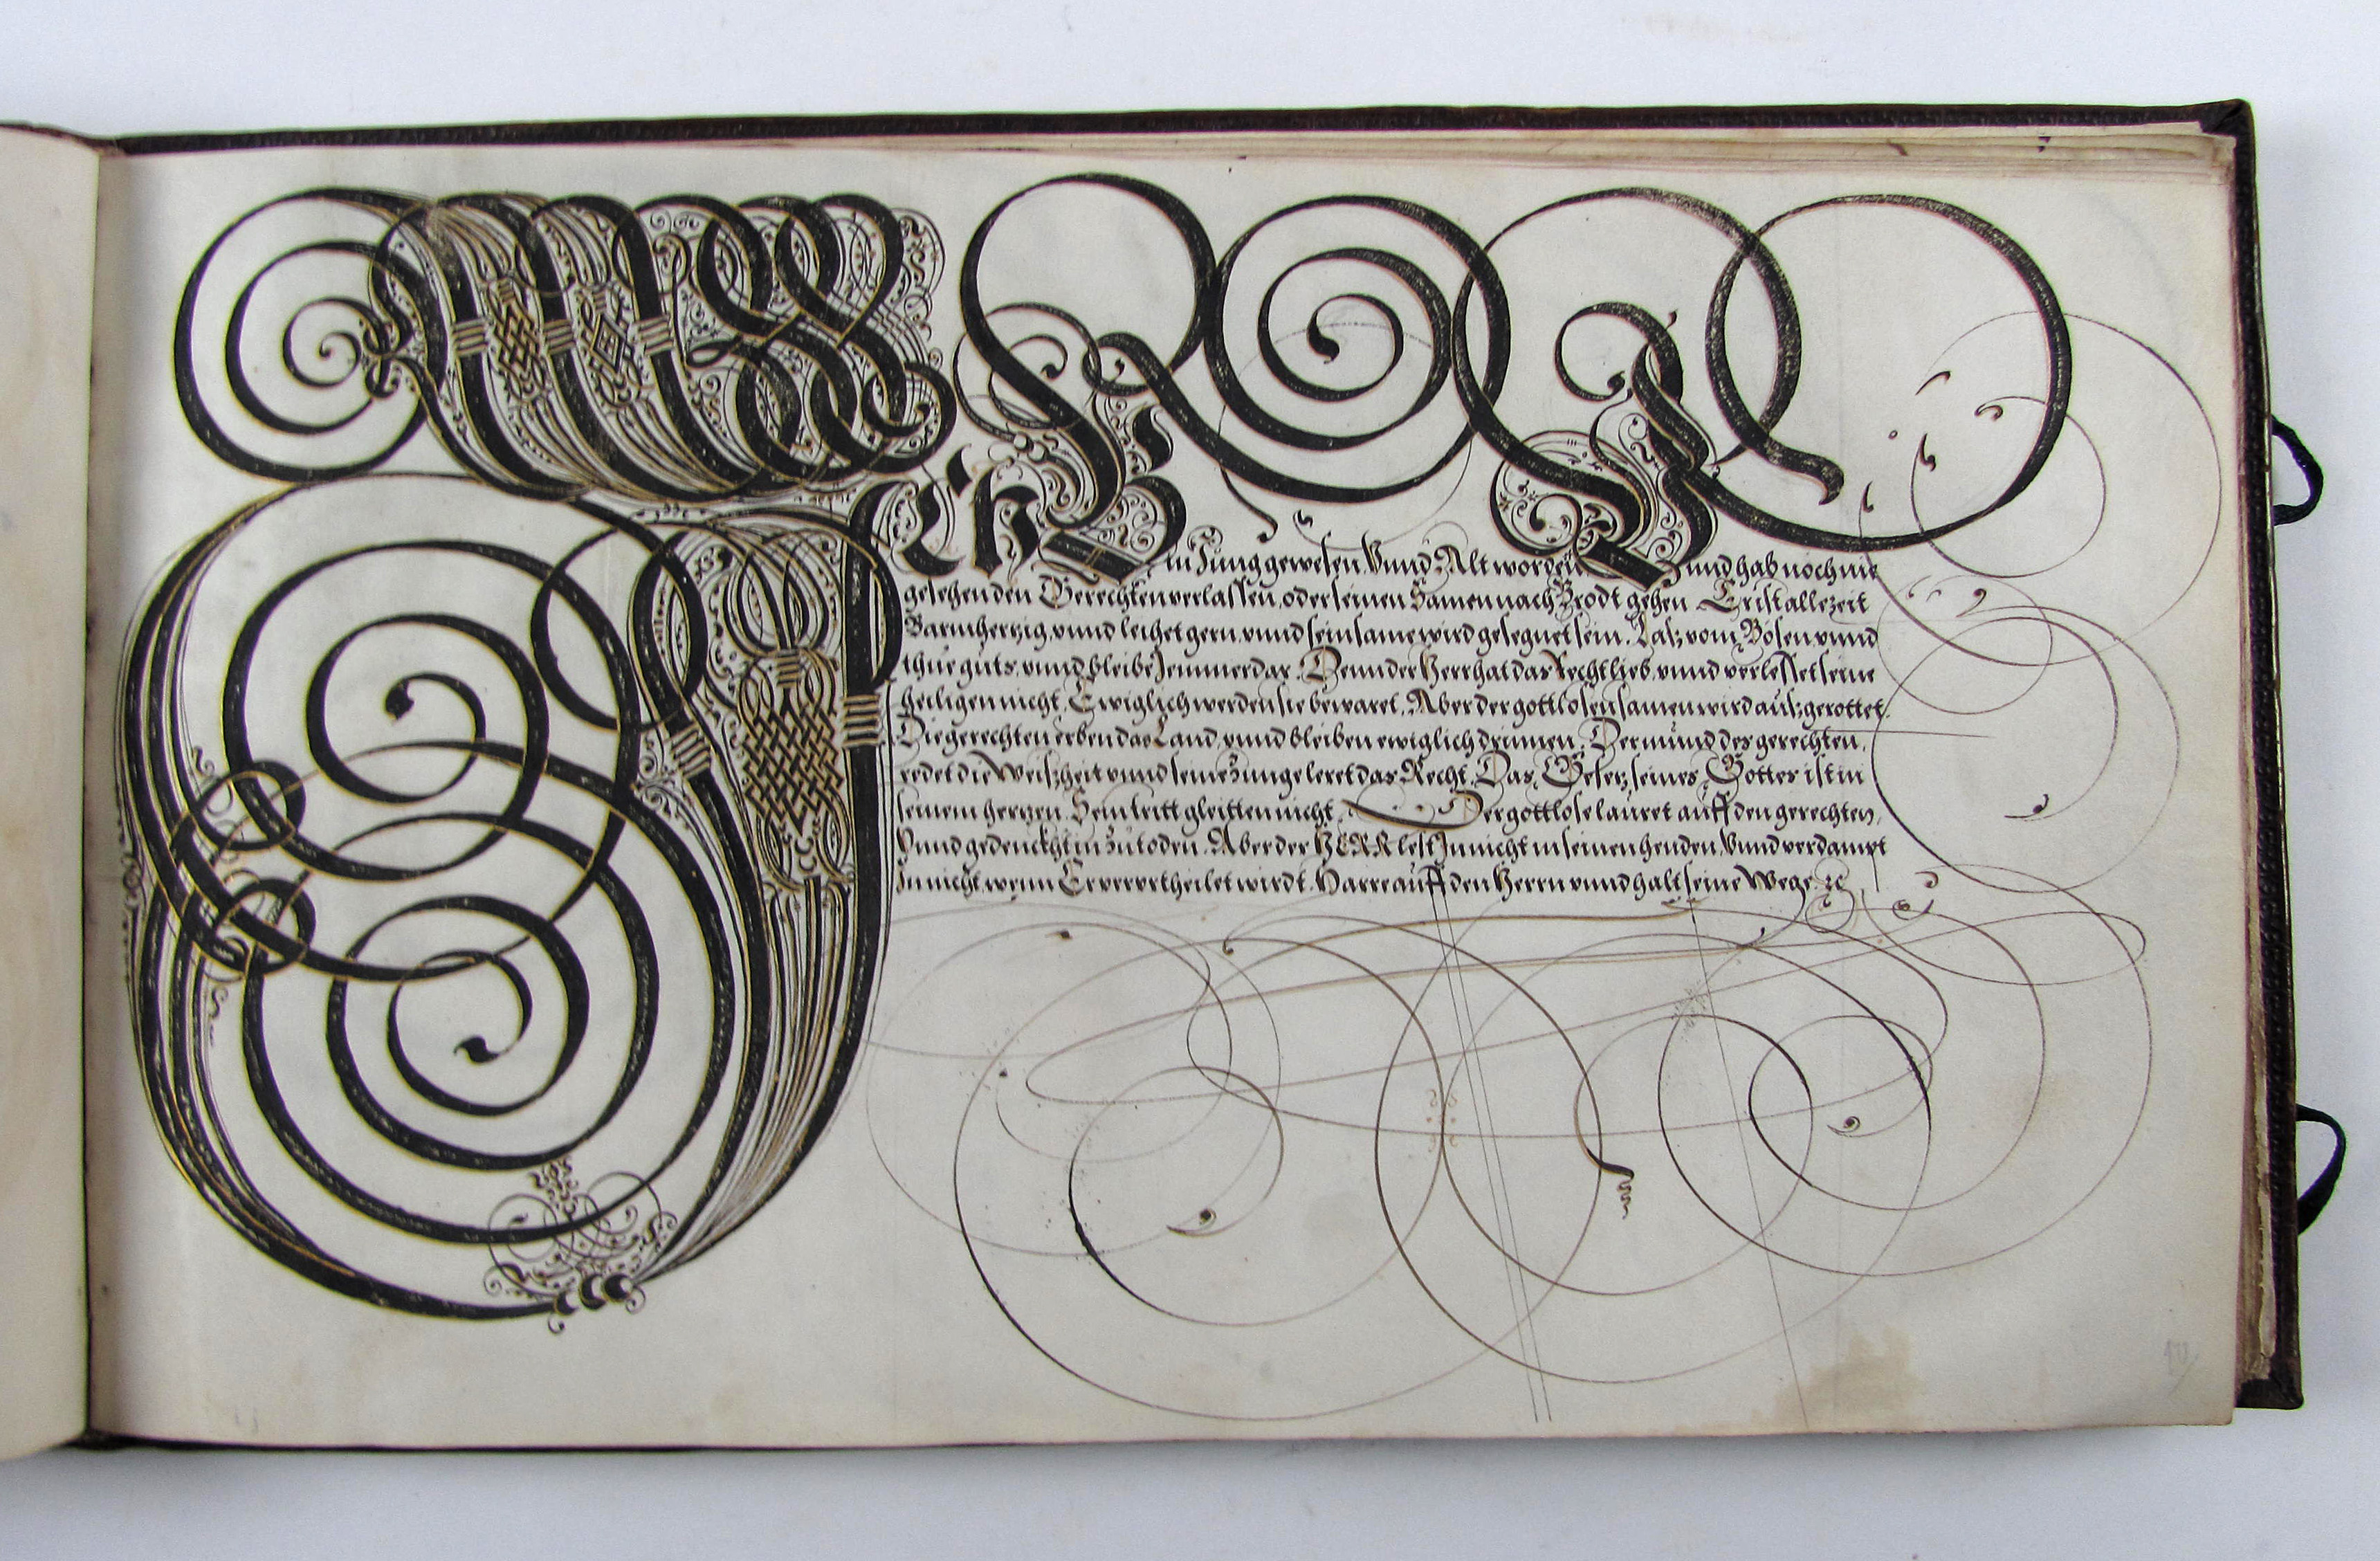 ICh Bin Jung gewesen, Vnnd Alt worden Vnnd hab noch nie
gesehen den Gerechten verlassen, oder seinen Samen nach Brodt gehen. Er ist allezeit
Barmhertzig, vnnd leihet gern, vnnd sein same wird gesegnet sein. Laß vom Bösen vnnd
thue guts, vnnd bleibe Jmmerdar. Denn der Herr hat das Recht lieb, vnnd verlesset seine
heiligen nicht, Ewiglich werden sie bewaret, Aber der gottlosen samen wird außgerottet.
Die gerechten erben das Land, vnnd bleiben ewiglich drinnen. Der mund des gerechten,
redet die Weißheit vnnd seine Zunge leret das Recht. Das Gesetz seines Gottes ist in
seinem hertzen, Sein tritt gleitten nicht. Der gottlose lauret auff den gerechten,
Vnnd gedenckht in zu töden. Aber der HERR lest Jn nicht in seinen henden, Vnnd verdampt
Jn nicht, wenn Er verurtheilet wirdt. Harre auff den Herrn vnnd halt seine Wege ꝛc